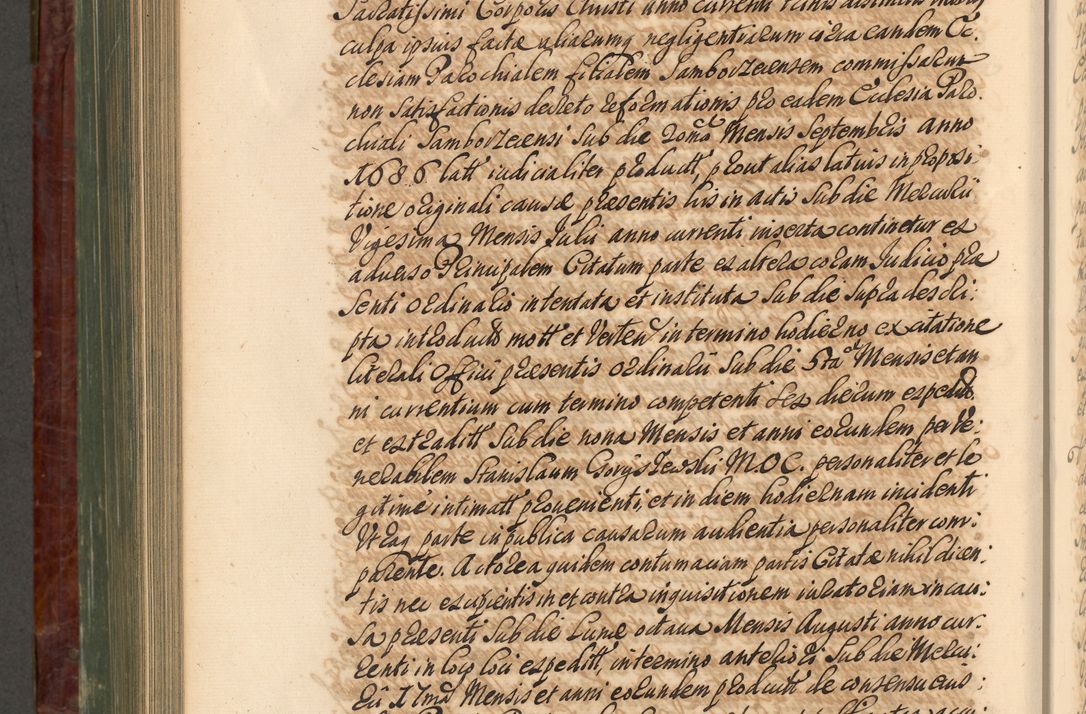 Sacratissimi Corporis Christi anno currenti
culpa ipsius factæ aliarumq negligentiarum circa eandem Ec-
clesiam Parochialem filialem Jamborzecensem commissarum
non satisfactionis decreto reformationis pro eadem Ecclesia Paro-
chiali Jamborzecensi sub die 20mâ Mensis Septembris anno
1686 latt iudicialiter productt, prout alias latius in proposi-
tione originali causæ præsentis his in actis sub die Mercurii
Vigesima Mensis Julii anno currenti inserta continetur ex
adverso Principalem Citatum parte ex altera coram Judicio præ
senti ordinario intentata et instituta sub die supra descri:
pta introducto mott et Verten in termino hodierno ex citatione
literali Officii præsentis ordinarii sub die 5ta Mensis et an
ni currentium cum termino competenti sex dierum expedit
et extraditt sub die nona Mensis et anni eorundem per Ve:
nerabilem Stanislaum M.O.C. personaliter et le
gitimè intimatt provenienti, et in diem hodiernam incidenti
Utraq parte in publica causarum audientia personaliter com:
parente. Actorea quidem contumaciam partis Citatæ nihil dicen:
tis nec excipientis in et contra inquisitionem iuratoriam in cau:
sa præsenti sub die Lunæ octava Mensis Augusti anno cur:
renti in loco loci expeditt, in termino anteriori sub die Mercu:
rii Mensis et anni eorundem productt de consensu eius: